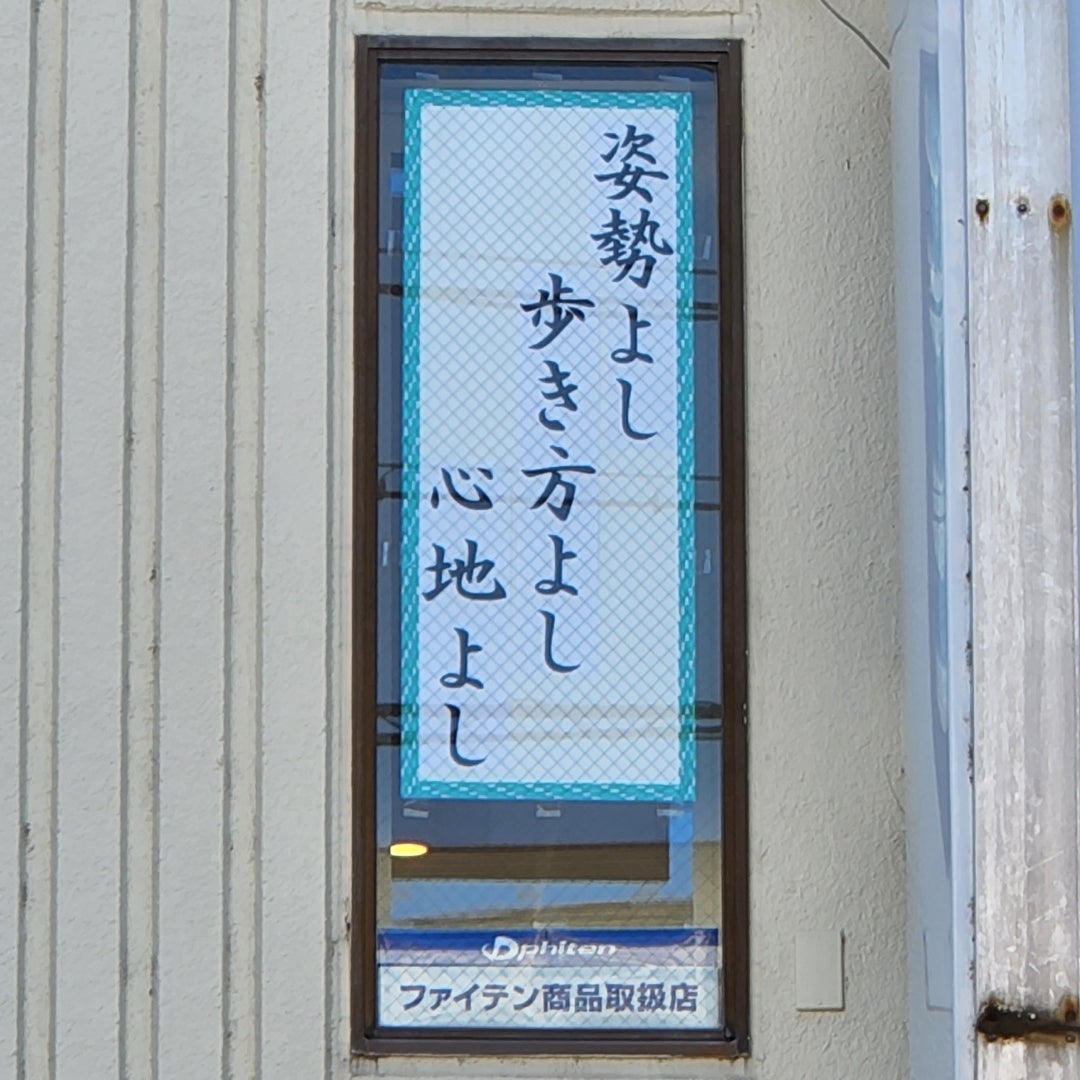 姿勢よし
歩き方よし
心地よし
phiten
ファイテン商品取扱店